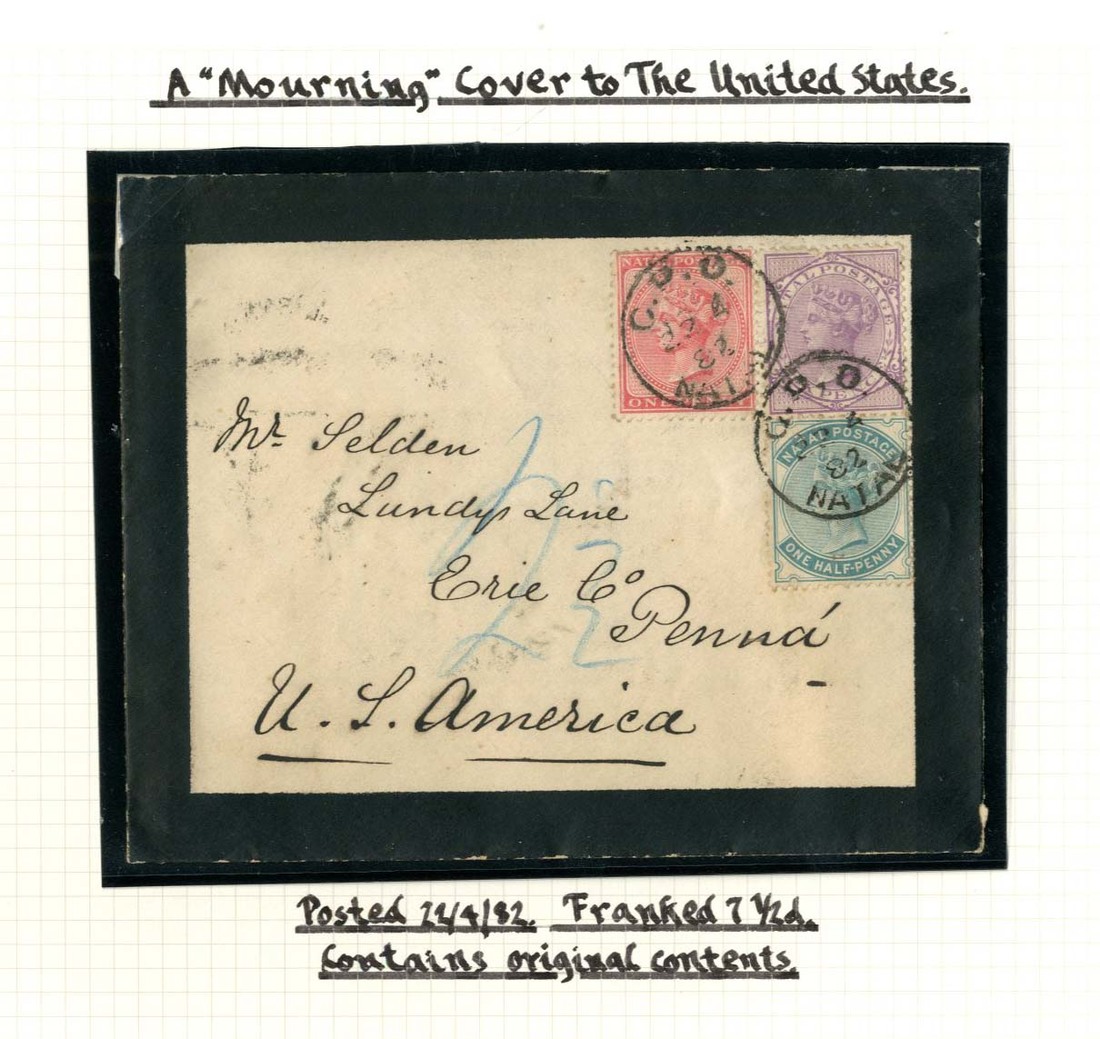 A "Mourning" Cover to The United States.
NATAL POSTAGE
ONE
NATAL POSTAGE
PE
G.P.O.
82
NATAL
G.P.O.
82
NATAL
NATAL POSTAGE
ONE HALF-PENNY
Mr. Selden
Lundys Lane
Erie Co
Penná
U. S. America
Posted 22/4/82. Franked 7 1/2d.
Contains original contents.